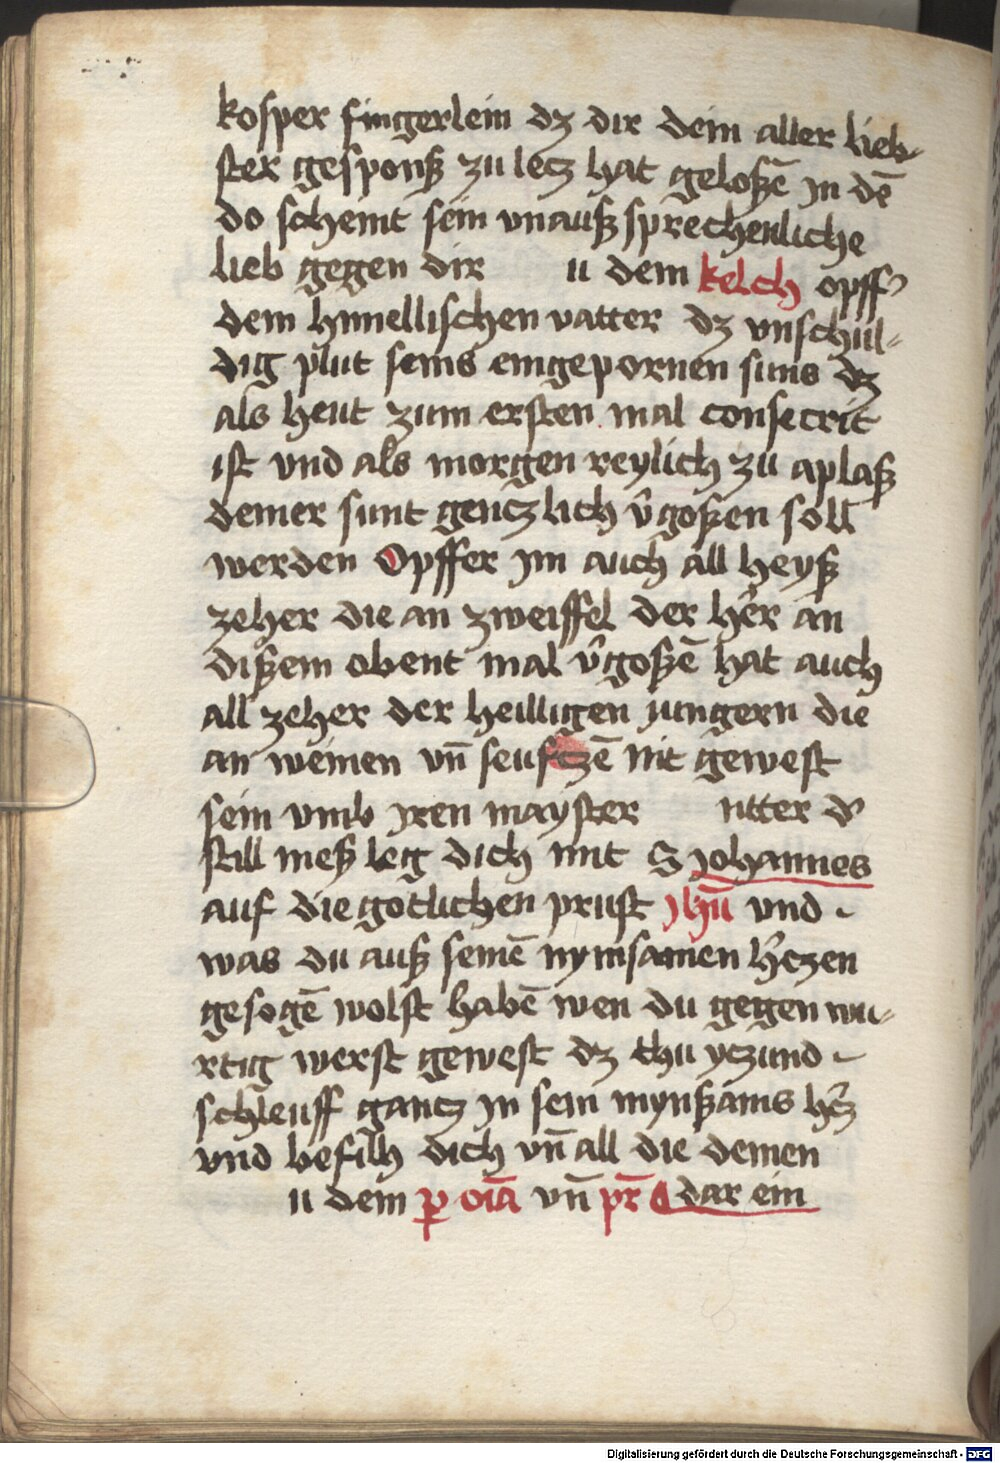 kosper fingerlein dz dir dein aller lieb-
ster gesponß zu lecz hat geloßē in dē
do scheint sein vnauß sprechenliche
lieb gegen dir u dem kelch opff
dem himellischen vatter dz vnschul-
dig plut seins eingepornen suns dz
als heut zum ersten mal consecrit
ist vnd als morgen reylich zu aplaß
deiner sunt genczlich v̄goßen soll
werden Opffer jm auch all heyß
zeher die an zweiffel der her an
dißem obent mal v̄goßē hat auch
all zeher der heilligen jungern die
an weinen vn̄ seufczē nit gewest
sein vmb jren mayster nter d
still meß leg dich mit S johannes
auf die gotlichen prust jhū vnd
was du auß seinē mynsamen hczen
gesogē wolst habē wen du gegen wu-
rtig werst gewest dz thu yczund
schleuff gancz in sein mynßams hcz
vnd befilh dich vn̄ all die deinen
u dem p oīa vn̄ pr̄ dar ein
Digitalisierung gefördert durch die Deutsche Forschungsgemeinschaft - DFG